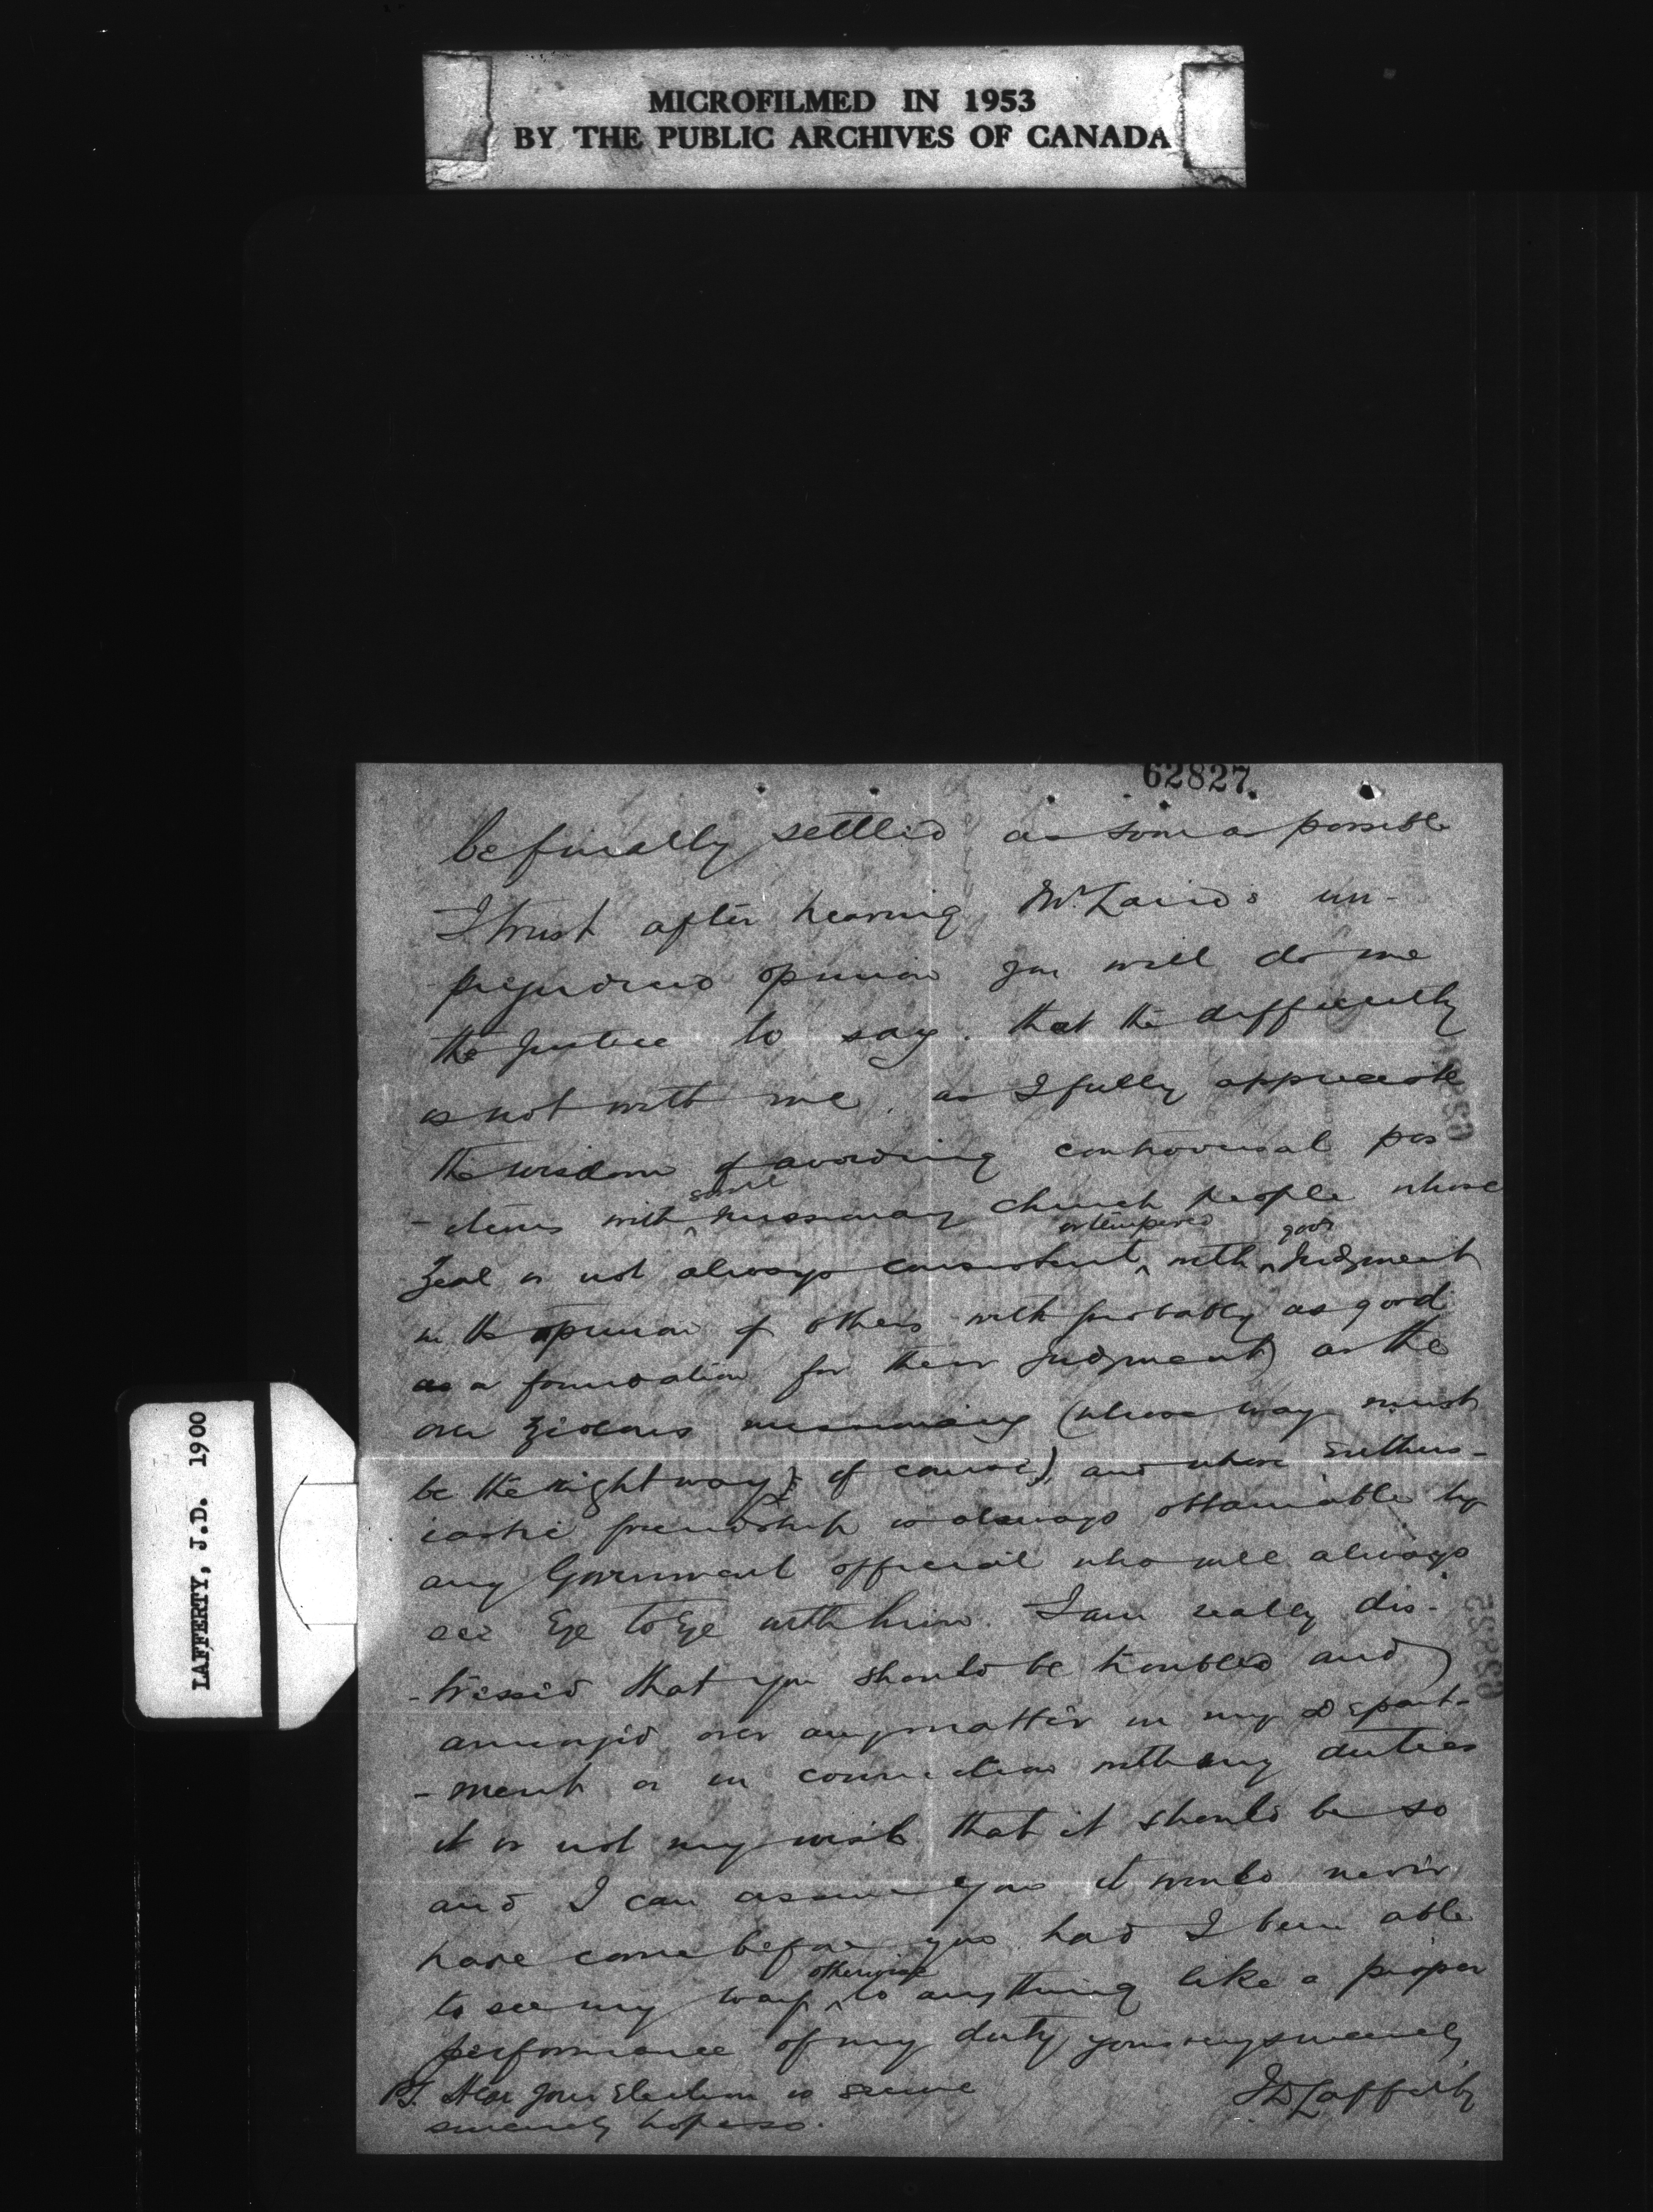 MICROFILMED IN 1953
BY THE PUBLIC ARCHIVES OF CANADA
62827
be finally settled as soon as possible
I trust after hearing Mr. Lairds un-
prejudiced opinion you will do me
the justice to say that the difficulty
is not with me. as I fully appreciate
the wisdom of avoiding controversal pos
-itions with some missionary church people whose
Zeal is not always consistent or tempered with good Judgment
in the opinion of others with probably as good
as a foundation for their judgment) as the
over zealous missionary (whose way must
be the right way, of course), and whose enthus-
iastic friendship is always obtainable by
any Government official who will always
see Eye to Eye with him. I am really dis-
-tressed that you should be troubled and
annoyed over any matter in my Depart-
-ment or in connection with my duties
it is not my wish that it should be so
and I can assure you it would never
have come before you had I been able
to see my way otherwise to anything like a proper
performance of my duty yours very sincerely
JD Lafferty
P.S. Hear your Election is secure
sincerely hope so.
LAFFERTY, J.D. 1900